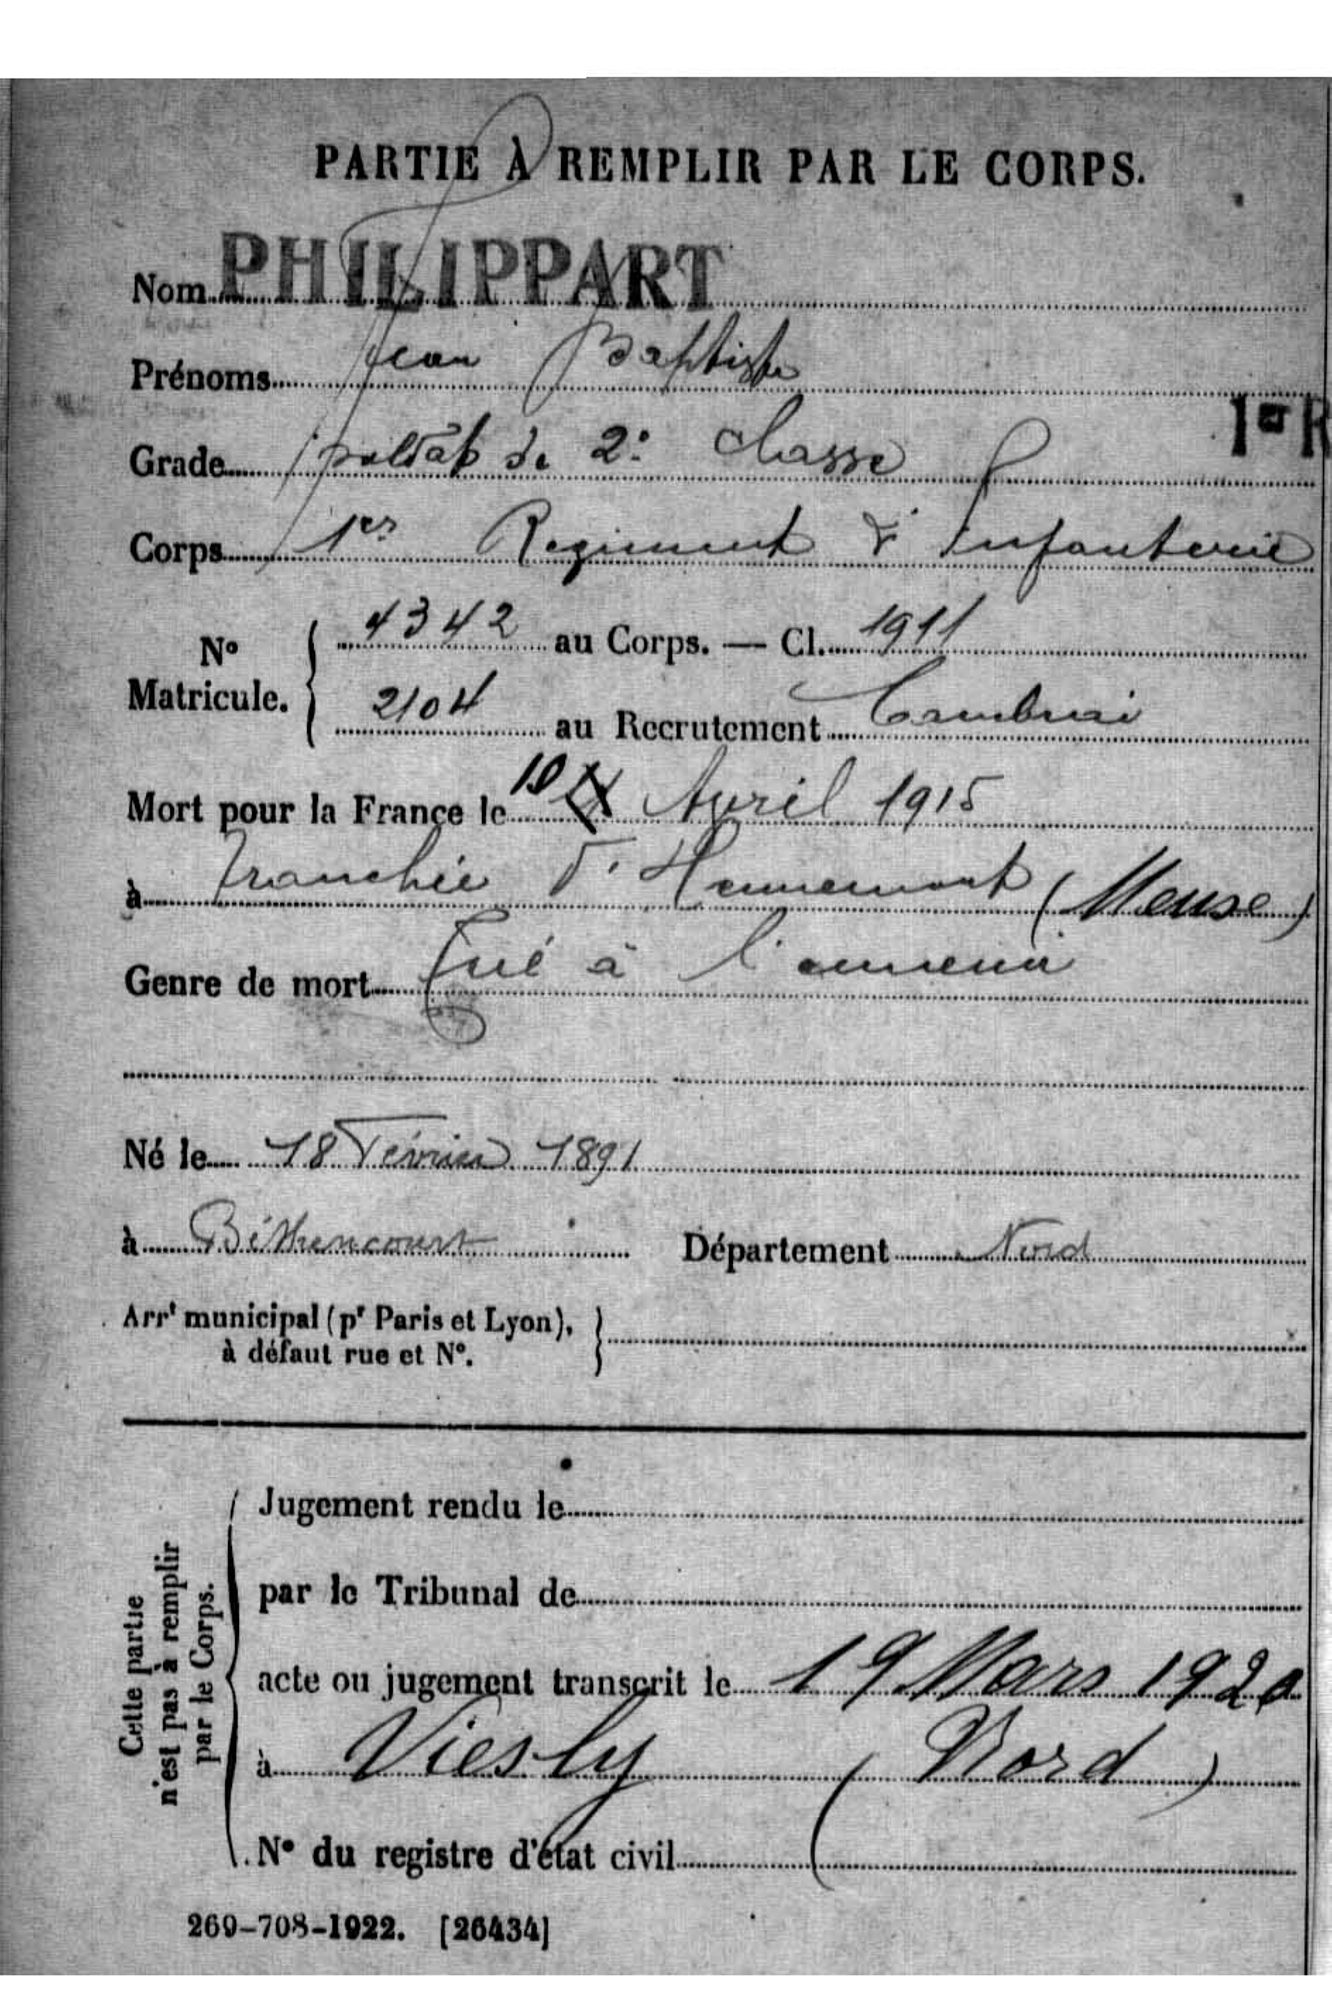 PARTIE À REMPLIR PAR LE CORPS.
Nom PHILIPPART
Prénoms Jean Baptiste
1er R
Grade soldat de 2e classe
Corps 1er Regiment d'Infanterie
No Matricule. { 4342 au Corps. — Cl. 1911
2104 au Recrutement Cambrai
Mort pour la France le 10 Avril 1915
à Tranchée d'Hennemont (Meuse)
Genre de mort Tué à l'ennemi
Né le 18 Février 1891
à Béthencourt Département Nord
Arrt municipal (pr Paris et Lyon),
à défaut rue et No.
Cette partie
n'est pas à remplir
par le Corps.
Jugement rendu le
par le Tribunal de
acte ou jugement transcrit le 19 Mars 1920
à Viesly (Nord)
No du registre d'état civil
269-708-1922. [26434]